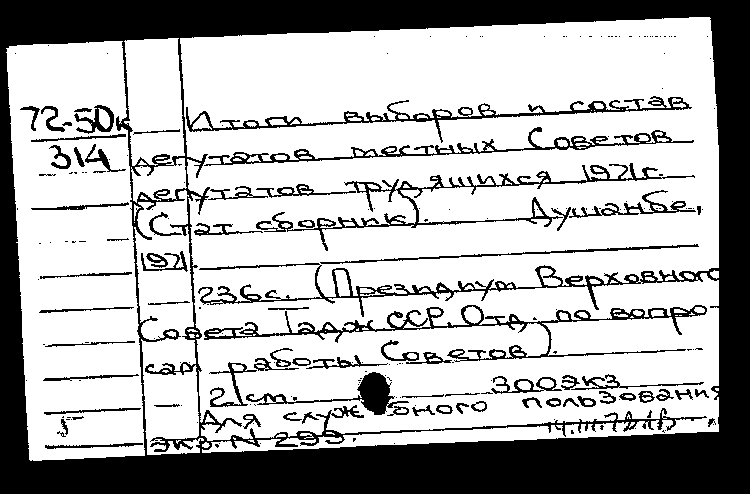 72-50к Итоги выборов и состав
314 депутатов местных Советов
депутатов трудящихся 1971г.
(Стат сборник). Душанбе,
1971.
236с. (Президиум Верховного
Совета Тадж ССР. Отд. по вопро-
сам работы Советов).
21см. 300экз
Для служебного пользования
экз. N 299.